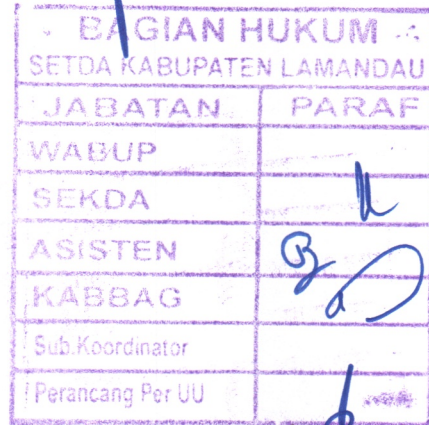 BAGIAN HUKUM
SETDA KABUPATEN LAMANDAU
JABATAN PARAF
WABUP
SEKDA
ASISTEN
KABBAG
Sub.Koordinator
Perancang Per UU